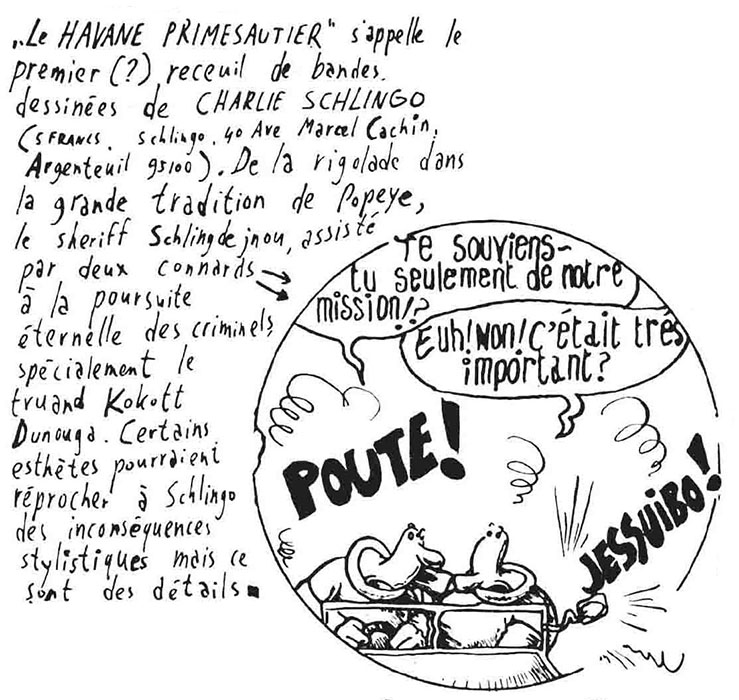 „Le HAVANE PRIMESAUTIER" s'appelle le
premier (?) receuil de bandes
dessinées de CHARLIE SCHLINGO
(5 FRANCS. schlingo. 40 Ave Marcel Cachin,
Argenteuil 95100). De la rigolade dans
la grande tradition de Popeye,
le sheriff Schlingdejnou, assisté
par deux connards
à la poursuite
éternelle des criminels,
spécialement le
truand Kokott
Dunouga. Certains
esthètes pourraient
réprocher à Schlingo
des inconséquences
stylistiques mais ce
sont des détails.
Te souviens-
tu seulement de notre
mission!?
Euh! Non! c'était très
important?
POUTE!
JESSUIBO!